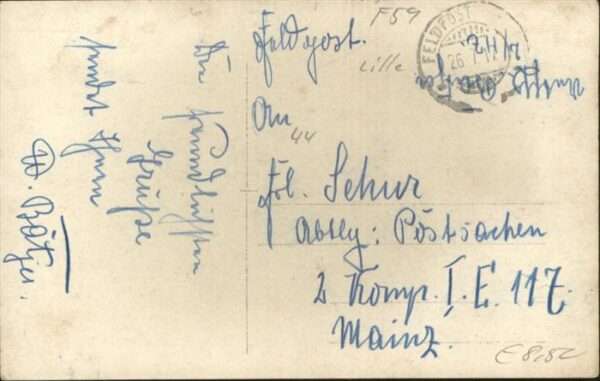 Die freundlichsten
Grüße
sendet Ihnen
W. Bötjer.
F59
Feldpost.
Lille
FELDPOST
26
An
44
Frl. Schur
Abtlg: Postsachen
2 Komp. I. E. 117.
Mainz.
E 8,52